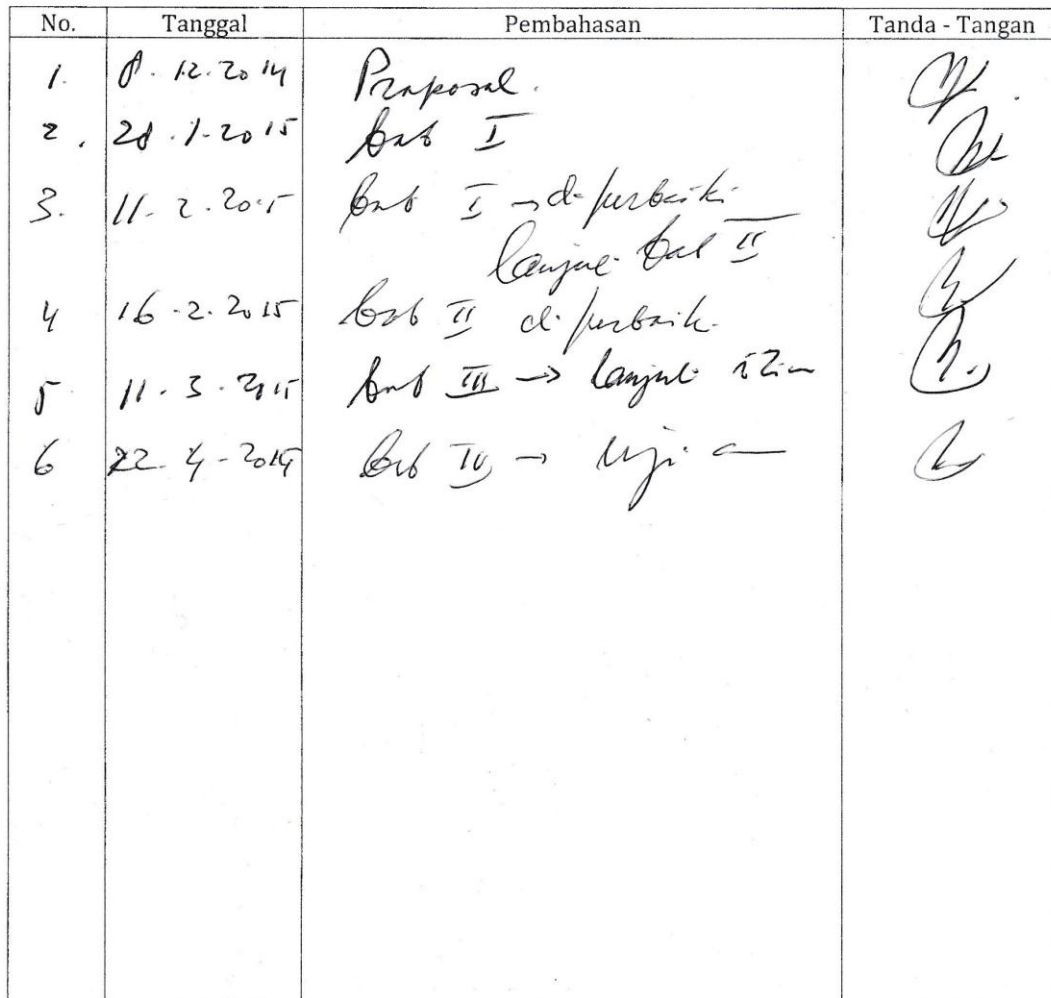 No. Tanggal Pembahasan Tanda - Tangan
1. 8. 12. 2014 Proposal.
2. 28. 1. 2015 bab I
3. 11. 2. 2015 bab I → diperbaiki
lanjut bab II
4 16. 2. 2015 bab II diperbaiki
5 11. 3. 2015 bab III → lanjut izin
6 22. 4 - 2015 bab IV → ujian